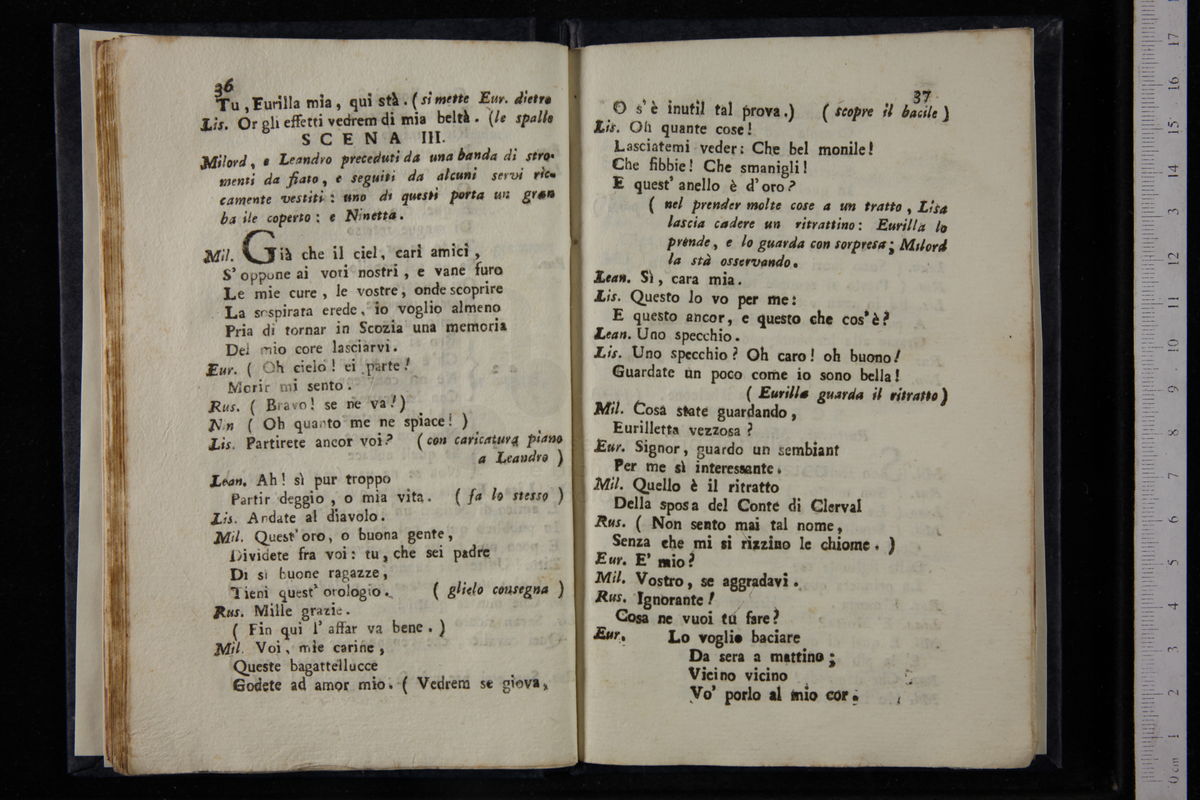 36
Tu, Eurilla mia, qui stà. (si mette Eur. dietro
Lis. Or gli effetti vedrem di mia beltà. (le spalle
SCENA III.
Milord, e Leandro preceduti da una banda di stro-
menti da fiato, e seguiti da alcuni servi ric-
camente vestiti: uno di questi porta un gran
ba ile coperto: e Ninetta.
Mil. Già che il ciel, cari amici,
S' oppone ai voti nostri, e vane furo
Le mie cure, le vostre, onde scoprire
La sospirata erede, io voglio almeno
Pria di tornar in Scozia una memoria
Del mio core lasciarvi.
Eur. ( Oh cielo! ei parte!
Morir mi sento.
Rus. ( Bravo! se ne va!)
Nin ( Oh quanto me ne spiace! )
Lis. Partirete ancor voi? (con caricatura piano
a Leandro )
Lean. Ah! sì pur troppo
Partir deggio, o mia vita. ( fa lo stesso )
Lis. Andate al diavolo.
Mil. Quest' oro, o buona gente,
Dividete fra voi: tu, che sei padre
Di sì buone ragazze,
Tieni quest' orologio. ( glielo consegna )
Rus. Mille grazie.
( Fin qui l' affar va bene. )
Mil. Voi, mie carine,
Queste bagattellucce
Godete ad amor mio. ( Vedrem se giova,
37
O s'è inutil tal prova.) ( scopre il bacile )
Lis. Oh quante cose!
Lasciatemi veder: Che bel monile!
Che fibbie! Che smanigli!
E quest' anello è d'oro?
( nel prender molte cose a un tratto, Lisa
lascia cadere un ritrattino: Eurilla lo
prende, e lo guarda con sorpresa; Milord
la stà osservando.
Lean. Sì, cara mia.
Lis. Questo lo vo per me:
E questo ancor, e questo che cos'è?
Lean. Uno specchio.
Lis. Uno specchio? Oh caro! oh buono!
Guardate un poco come io sono bella!
( Eurilla guarda il ritratto)
Mil. Cosa state guardando,
Eurilletta vezzosa?
Eur. Signor, guardo un sembiant
Per me sì interessante.
Mil. Quello è il ritratto
Della sposa del Conte di Clerval
Rus. ( Non sento mai tal nome,
Senza che mi si rizzino le chiome. )
Eur. E' mio?
Mil. Vostro, se aggradavi.
Rus. Ignorante!
Cosa ne vuoi tu fare?
Eur. Lo voglio baciare
Da sera a mattino;
Vicino vicino
Vo' porlo al mio cor.